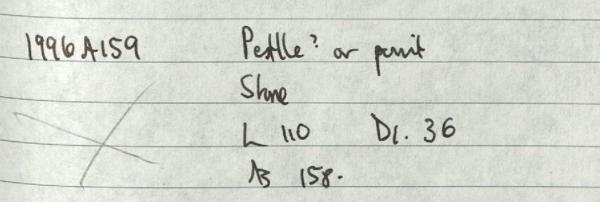 1996A159 Pestle? or
Stone
L 110 Di. 36
As 158.